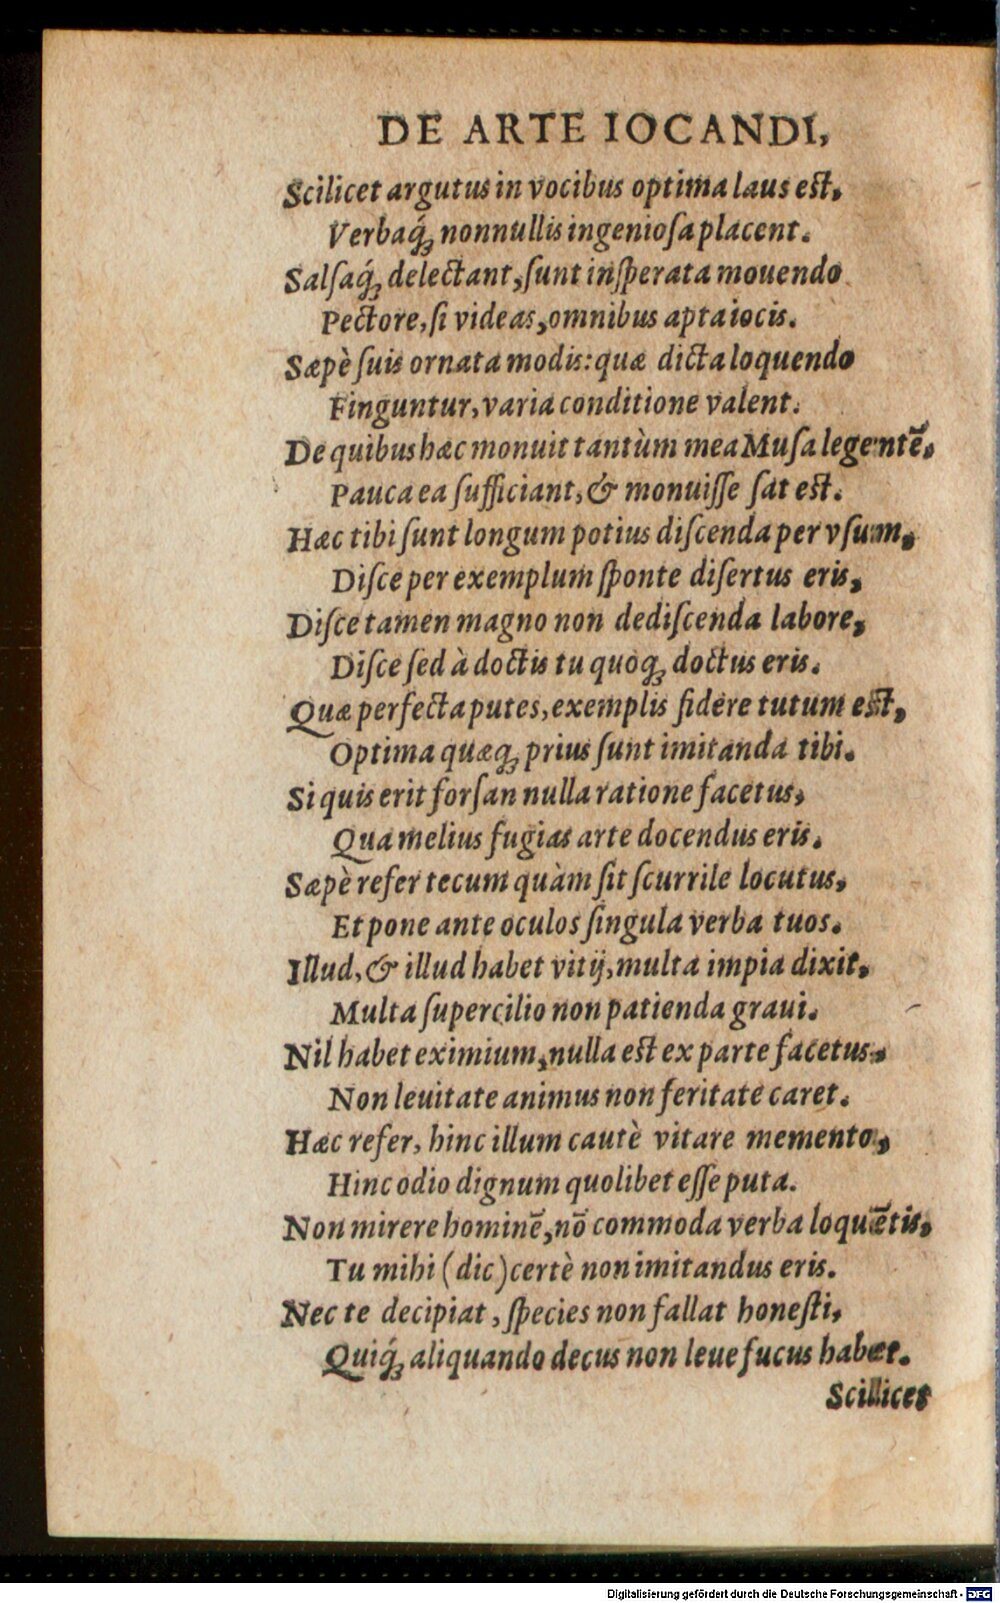 DE ARTE IOCANDI,
Scilicet argutus in vocibus optima laus est,
Verbaq́; nonnullis ingeniosa placent.
Salsaq́; delectant, sunt insperata mouendo
Pectore, si videas, omnibus apta iocis.
Sæpè suis ornata modis: quæ dicta loquendo
Finguntur, varia conditione valent.
De quibus hæc monuit tantùm mea Musa legentē,
Pauca ea sufficiant, & monuisse sat est.
Hæc tibi sunt longum potius discenda per vsum,
Disce per exemplum sponte disertus eris,
Disce tamen magno non dediscenda labore,
Disce sed à doctis tu quoq; doctus eris.
Quæ perfecta putes, exemplis fidere tutum est,
Optima quæq; prius sunt imitanda tibi.
Si quis erit forsan nulla ratione facetus,
Qua melius fugias arte docendus eris.
Sæpè refer tecum quàm sit scurrile locutus,
Et pone ante oculos singula verba tuos.
Illud, & illud habet vitij, multa impia dixit,
Multa supercilio non patienda graui.
Nil habet eximium, nulla est ex parte facetus,
Non leuitate animus non feritate caret.
Hæc refer, hinc illum cautè vitare memento,
Hinc odio dignum quolibet esse puta.
Non mirere hominē, nō commoda verba loquētis,
Tu mihi (dic) certè non imitandus eris.
Nec te decipiat, species non fallat honesti,
Quiq́; aliquando decus non leue fucus habet.
Scilicet
Digitalisierung gefördert durch die Deutsche Forschungsgemeinschaft - DFG